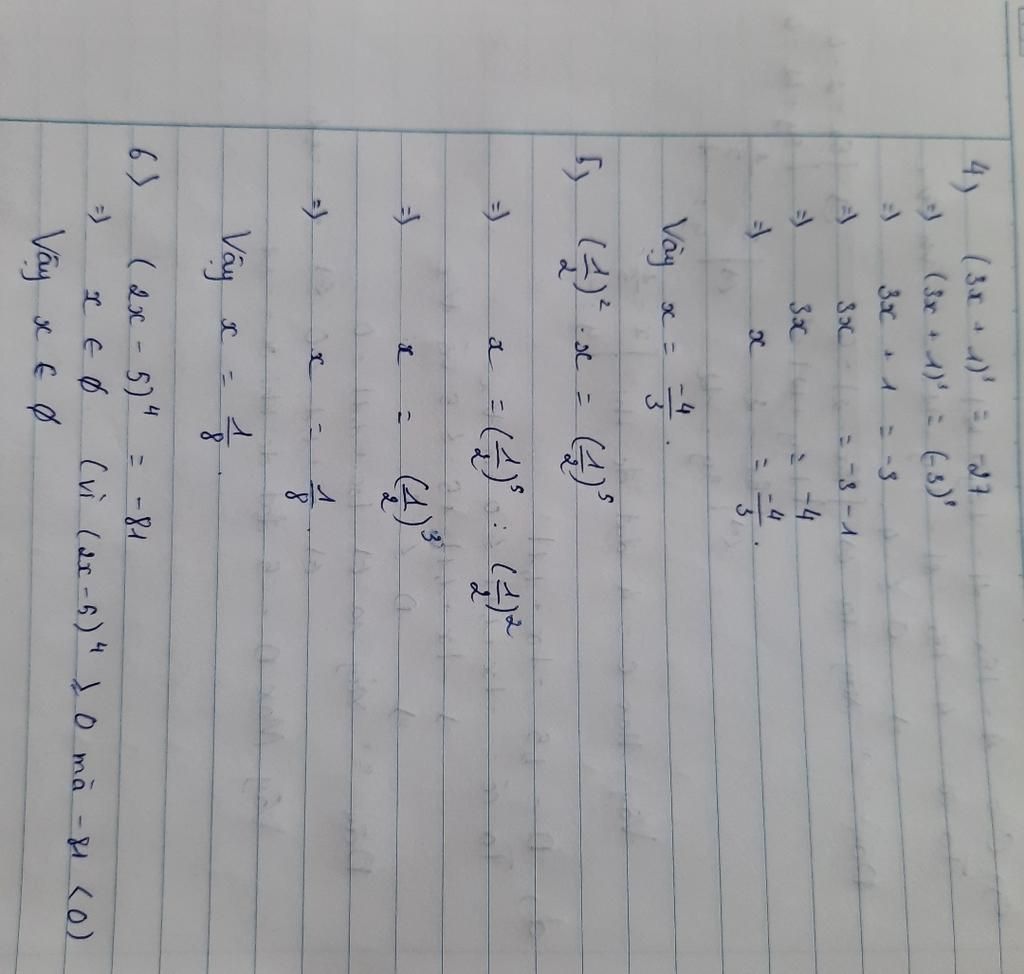 4) (3x + 1)³ = -27
=) (3x + 1)³ = (-3)³
=) 3x + 1 = -3
=) 3x = -3 - 1
=) 3x = -4
=) x = -4/3.
Vậy x = -4/3.
5) (1/2)² . x = (1/2)⁵
=) x = (1/2)⁵ : (1/2)²
=) x = (1/2)³
=) x = 1/8.
Vậy x = 1/8.
6) (2x - 5)⁴ = -81
=) x ∈ ∅ (vì (2x - 5)⁴ ≥ 0 mà -81 < 0)
Vậy x ∈ ∅